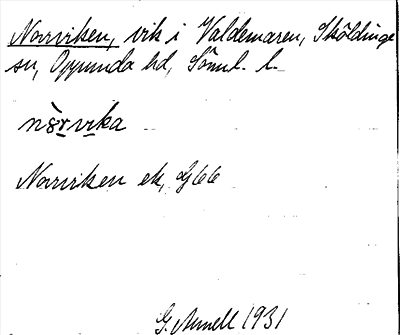 Norrviken, vik i Valdemaren, Sköldinge
sn, Oppunda hd, Söml. l.
nŏrvika
Norrviken ek, Gj66
G. Arnell 1931